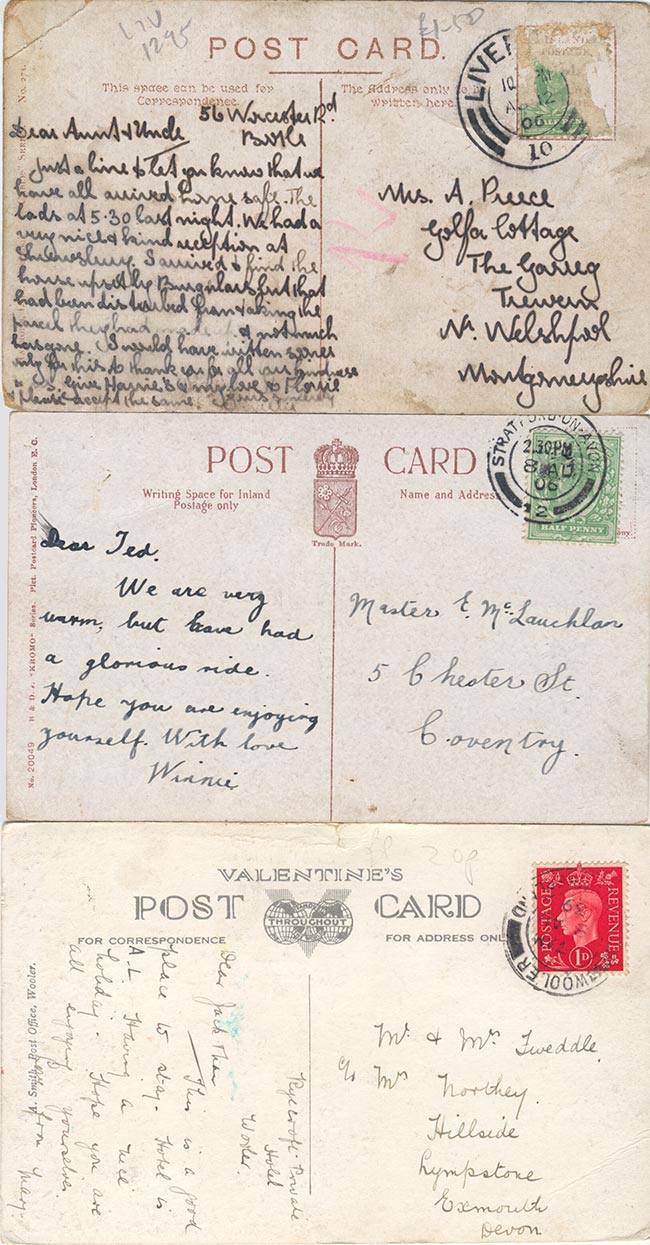 LIV
1295
£1-50
POST CARD.
This space can be used for
Correspondence.
The Address only to be
written here.
LIVER
10 PM
AU 12
06
10
HALF
56 Worcester Rd
Bootle
Dear Aunt & Uncle
Just a line to let you know that we
have all arrived home safe. The
lads at 5.30 last night. We had a
very nice & kind reception at
Shrewsbury. I arrived to find the
house upset by Burglars but that
had been disturbed than taking the
parcel they had made up & not much
has gone. I would have written sooner
only for this to thank you for all your kindness
to us. Give my love to Florrie
& please accept the same. Yours sincerely
Mrs. A. Preece
Golfa Cottage
The Garreg
Trewern
Nr. Welshpool
Montgomeryshire
POST CARD
Writing Space for Inland
Postage only
Name and Address
Trade Mark.
STRATFORD-ON-AVON
2.30PM
8 AU
06
12
HALF PENNY
No. 20049 B & D. s "KROMO" Series. Pict. Postcard Pioneers, London E. C.
Dear Ted.
We are very
warm, but have had
a glorious ride.
Hope you are enjoying
yourself. With love
Winnie
Master E. McLauchlan
5 Chester St.
Coventry.
20p
VALENTINE'S
POST CARD
THROUGHOUT
FOR CORRESPONDENCE
FOR ADDRESS ONLY
WOOLER
POSTAGE REVENUE
1D
Smith, Post Office, Wooler.
Ryecroft Private
Hotel
Wooler.
Dear Jack & Thea
This is a good
place to stay. Hotel is
A.1. Having a nice
holiday. Hope you are
all enjoying yourselves
from May.
Mr & Mrs Tweddle.
c/o Mrs Northey
Hillside
Lympstone
Exmouth
Devon